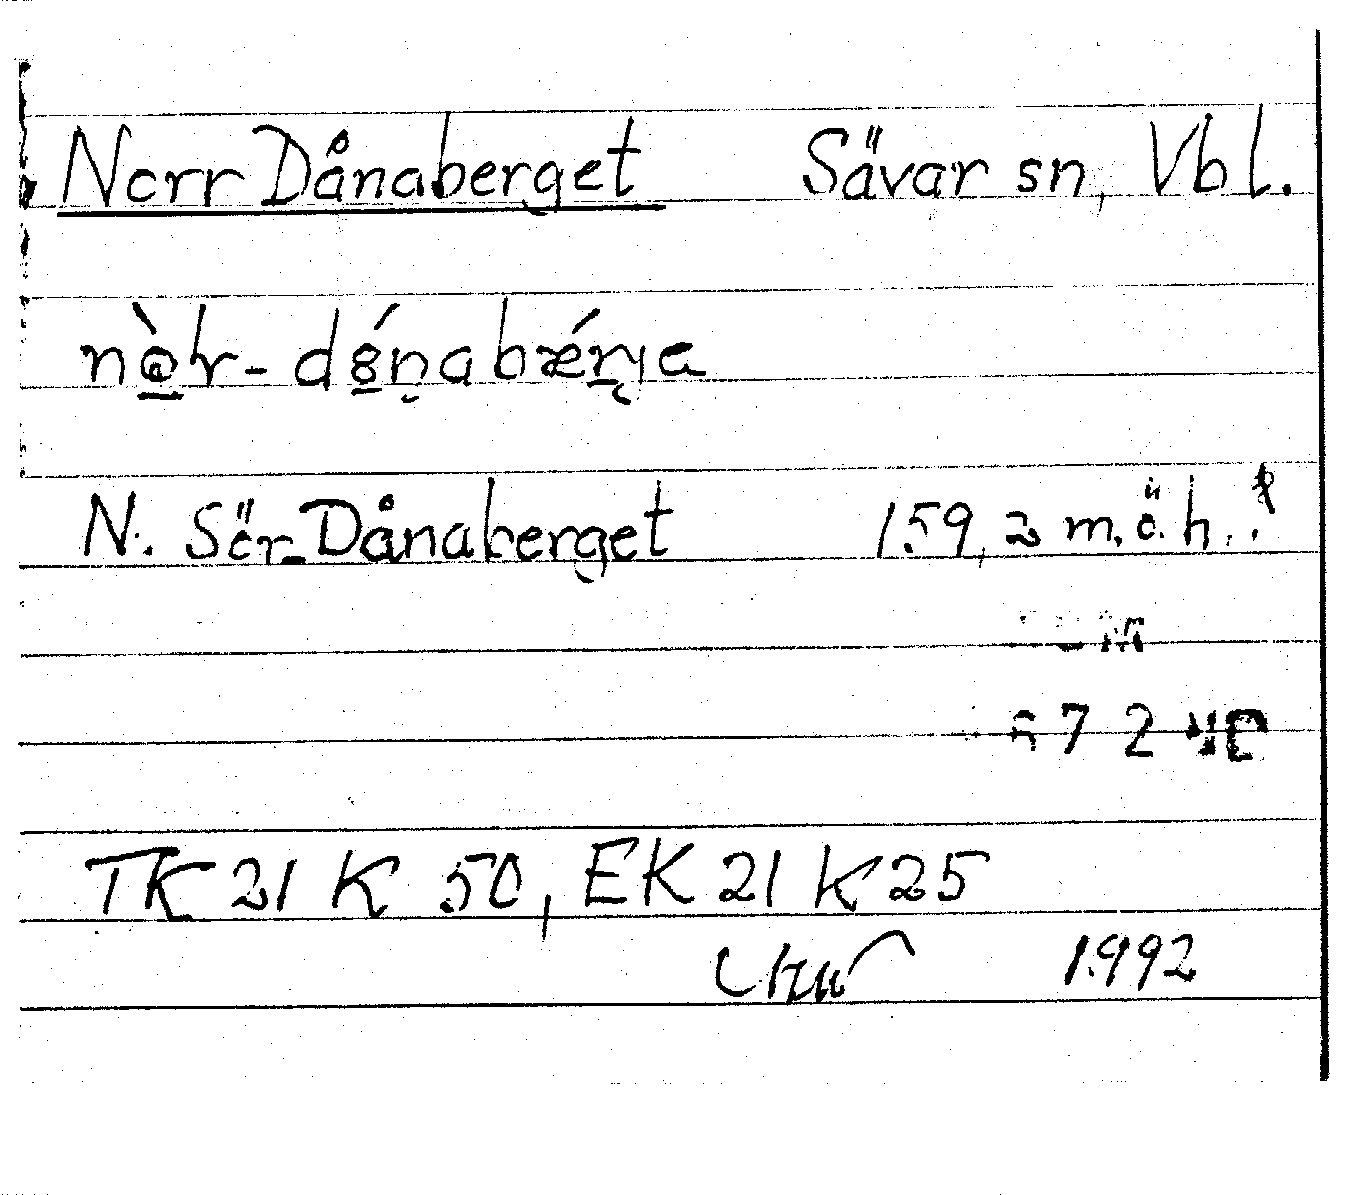 Norr Dånaberget Sävar sn, Vbl.
N. Sör-Dånaberget 159,2 m.ö.h..
672
TK 21 K 50, EK 21 K 25
1992